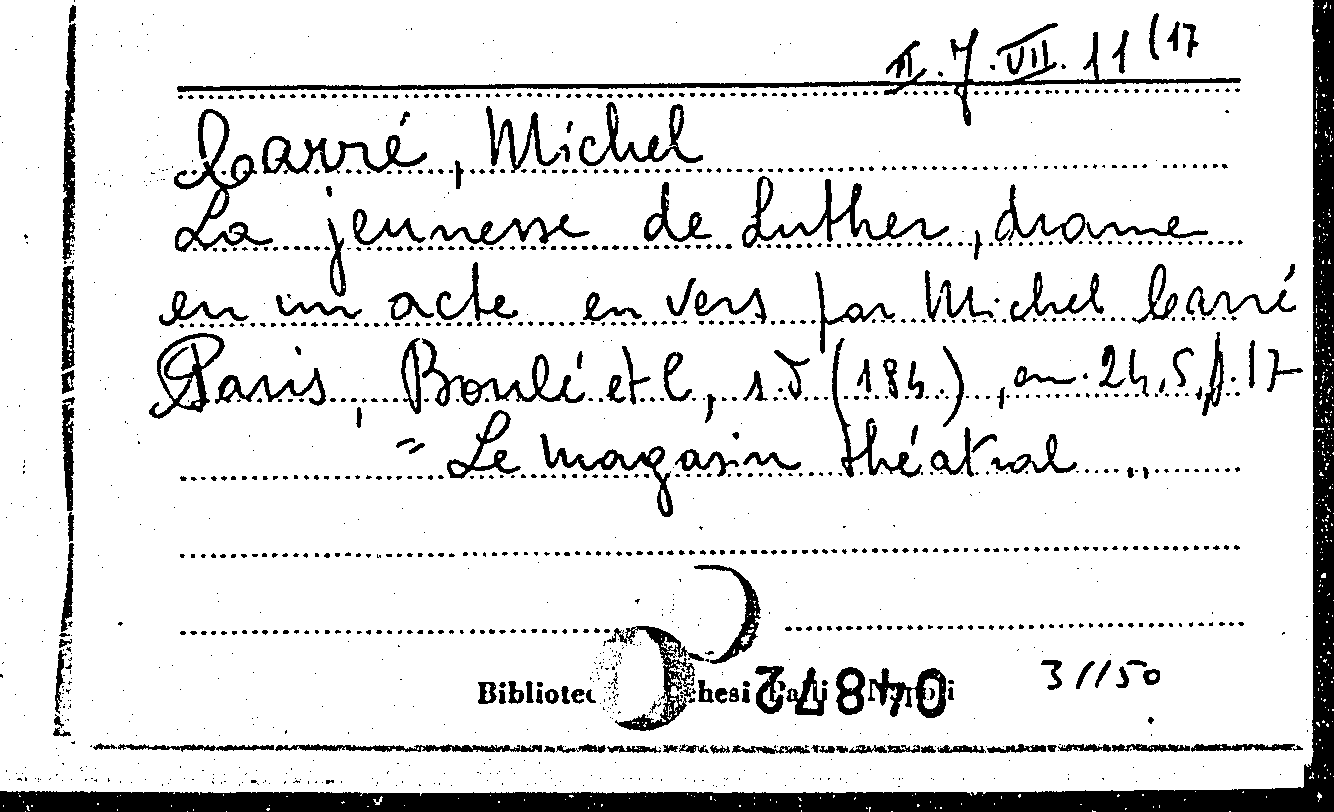 II.7.VII.11(17
Carré, Michel
La jeunesse de Luther, drame
en un acte en vers par Michel Carré
Paris, Boulé et C, s.d (184.), cm. 24,5, p. 17
= Le magasin théatral "
Bibliotec hesi Napoli
04872
31150